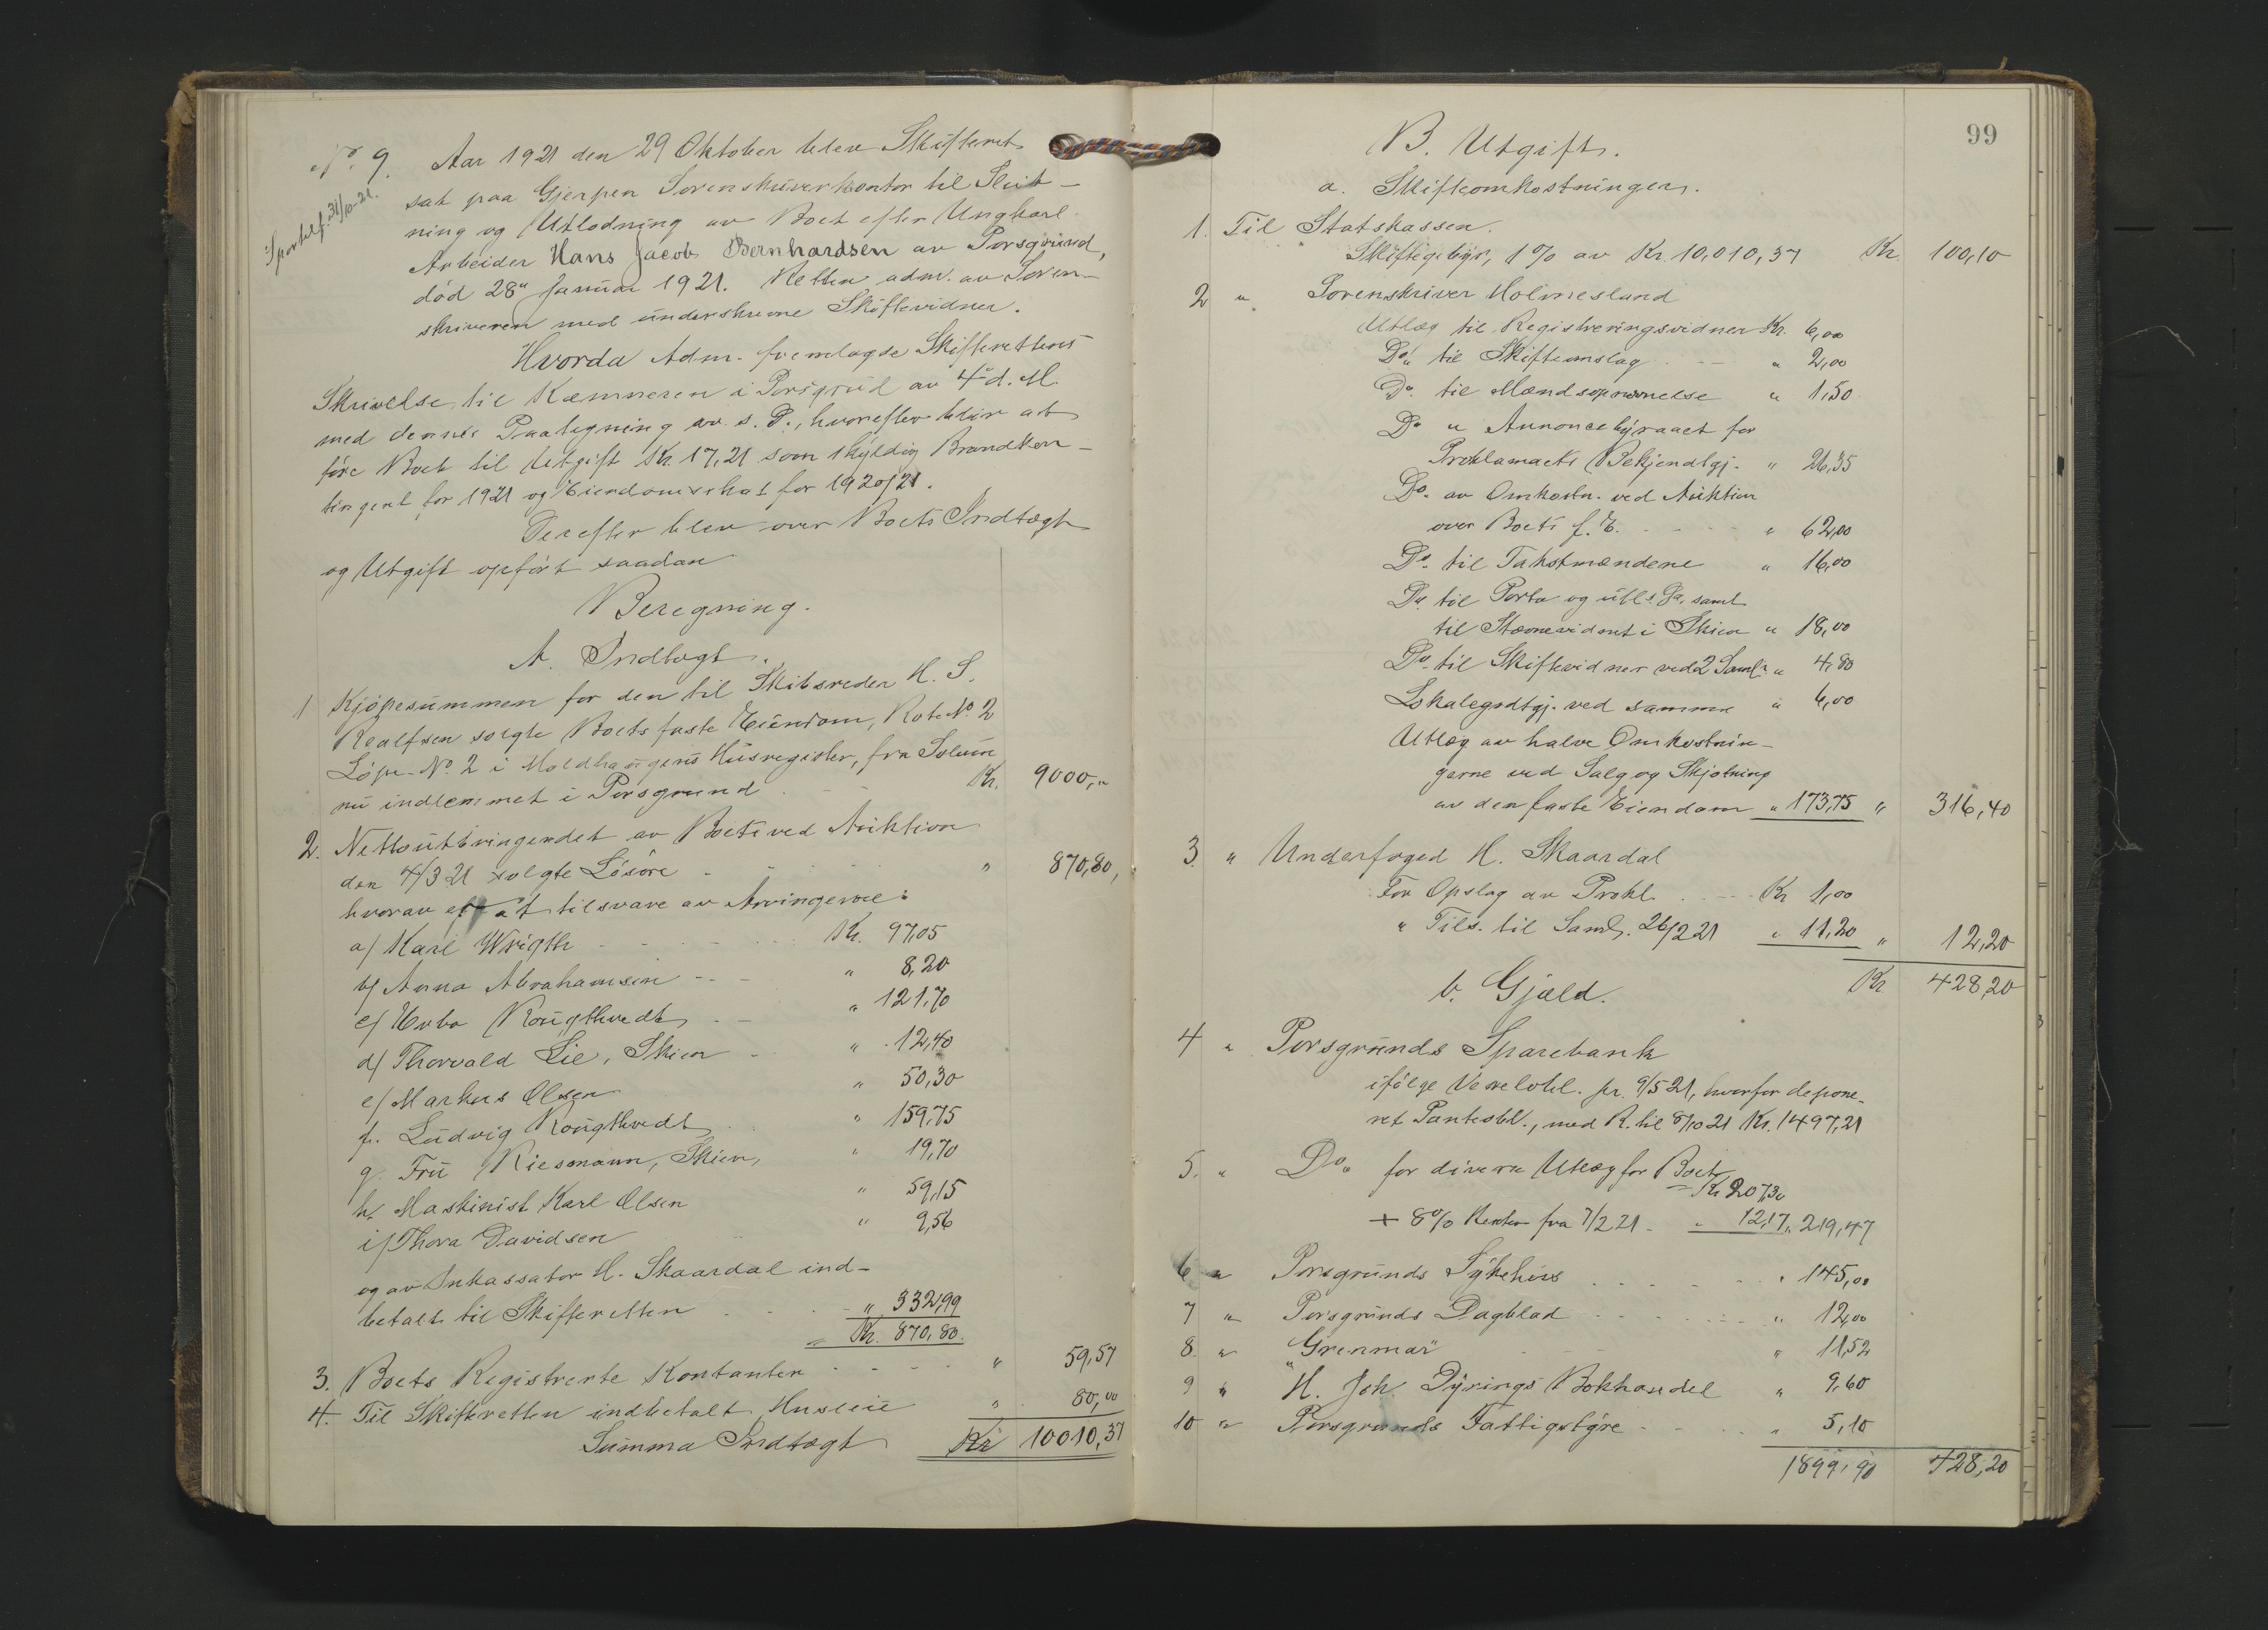 No. 9. Aar 1921 den 29 Oktober blev Skifteret
Sportelf. 31/10-21.
sat paa Gjerpen Sorenskriverkontor til Slut-
ning og Utlodning av Boet efter Ungkarl
Arbeider Hans Jacob Bernhardsen av Porsgrund,
död 28" Januar 1921. Retten adm. av Soren-
skriveren med underskrevne Skiftevidner.
Hvorda Adm. fremlagde Skifterettens
Skrivelse til Kæmneren i Porsgrund av 4" d. M.
med dennes Paategning av s. D., hvorefter blir at
före Boet til Utgift Kr. 17,21 som skyldig Brandkon-
tingent for 1921 og Eiendomsskat for 1920/21.
Derefter blev over Boets Indtægt
og Utgift opfört saadan
Beregning.
A. Indtægt.
1 Kjöpesummen for den til Skibsreder H. S.
Realfsen solgte Boets faste Eiendom, Rote No. 2
Löpe-No. 2 i Moldhaugens Husregister, fra Solum
nu indlemmet i Porsgrund Kr. 9000,"
2. Nettoutbringendet av Boets ved Auktion
den 4/3 21 solgte Lösöre " 870,80,
hvorav er at tilsvare av Arvingerne:
a/ Karl Wrigth Kr. 97,05
b/ Anna Abrahamsen " 8,20
c/ Ebba Rougthvedt " 121,70
d/ Thorvald Lie, Skien " 12,40
e/ Markus Olsen " 50,30
f. Ludvig Rougthvedt " 159,75
g. Fru Riesmann, Skien, " 19,70
h. Maskinist Karl Olsen " 59,15
i/ Thora Davidsen " 9,56
og av Inkassator H. Skaardal ind-
betalt til Skifteretten " 332,99
= Kr. 870,80.
3. Boets Registrerte Kontanter " 59,57
4. Til Skifteretten indbetalt Husleie " 80,00
Summa Indtægt Kr 10010,37
99
B. Utgift.
a. Skifteomkostninger.
1. Til Statskassen.
Skiftegebyr, 1% av Kr. 10,010,37 Kr. 100,10
2 " Sorenskriver Holmesland
Utlæg til Registreringsvidner Kr. 6,00
Do. til Skifteomslag " 2,00
Do. til Mændsopnævnelse " 1,50
Do " Annoncebyraaet for
Proklamaets Bekjendtgj. " 26,35
Do. av Omkostn. ved Auktion
over Boets f. E. " 62,00
Do. til Takstmændene " 16,00
Do. til Porto og samt
til Stævnevidnet i Skien " 18,00
Do. til Skiftevidner ved 2 Saml. " 4,80
Lokalegodtgj. ved samme " 6,00
Utlæg av halve Omkostnin-
gerne ved Salg og Skjötning
av den faste Eiendom " 173,75 " 316,40
3. " Underfoged H. Skaardal
For Opslag av Prokl. Kr 1,00
" Tils. til Saml. 26/2 21 " 11,20 " 12,20
Kr 428,20
b. Gjæld.
4 " Porsgrunds Sparebank
ifölge Vexelobl. pr. 9/5 21, hvorfor depone-
ret Panteobl., med R. til 8/10 21 Kr. 1497,21
5. " Do. for diverse Utlæg for Boet
Kr 207,30
+ 8% Renter fra 7/2 21 " 12,17 " 219,47
6 " Porsgrunds Sykehus " 145,00
7 " Porsgrunds Dagblad " 12,00
8. " "Grenmar" " 11,52
9 " H. Joh. Dyrings Bokhandel " 9,60
10 " Porsgrunds Fattigstyre " 5,10
1899,90 428,20